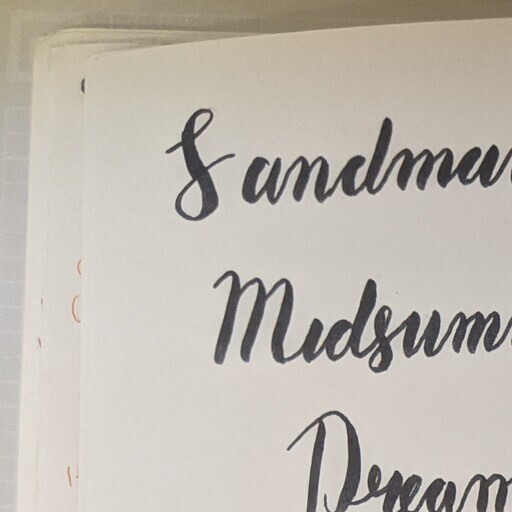 Sandma
Midsum
Dream